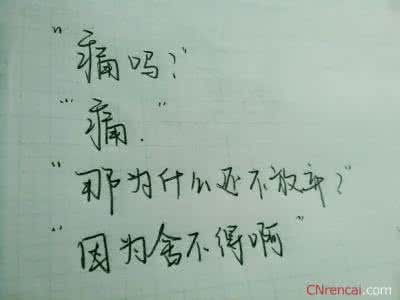 “痛吗?”
“痛.”
“那为什么还不放弃?”
“因为舍不得啊”
CNrencai.com